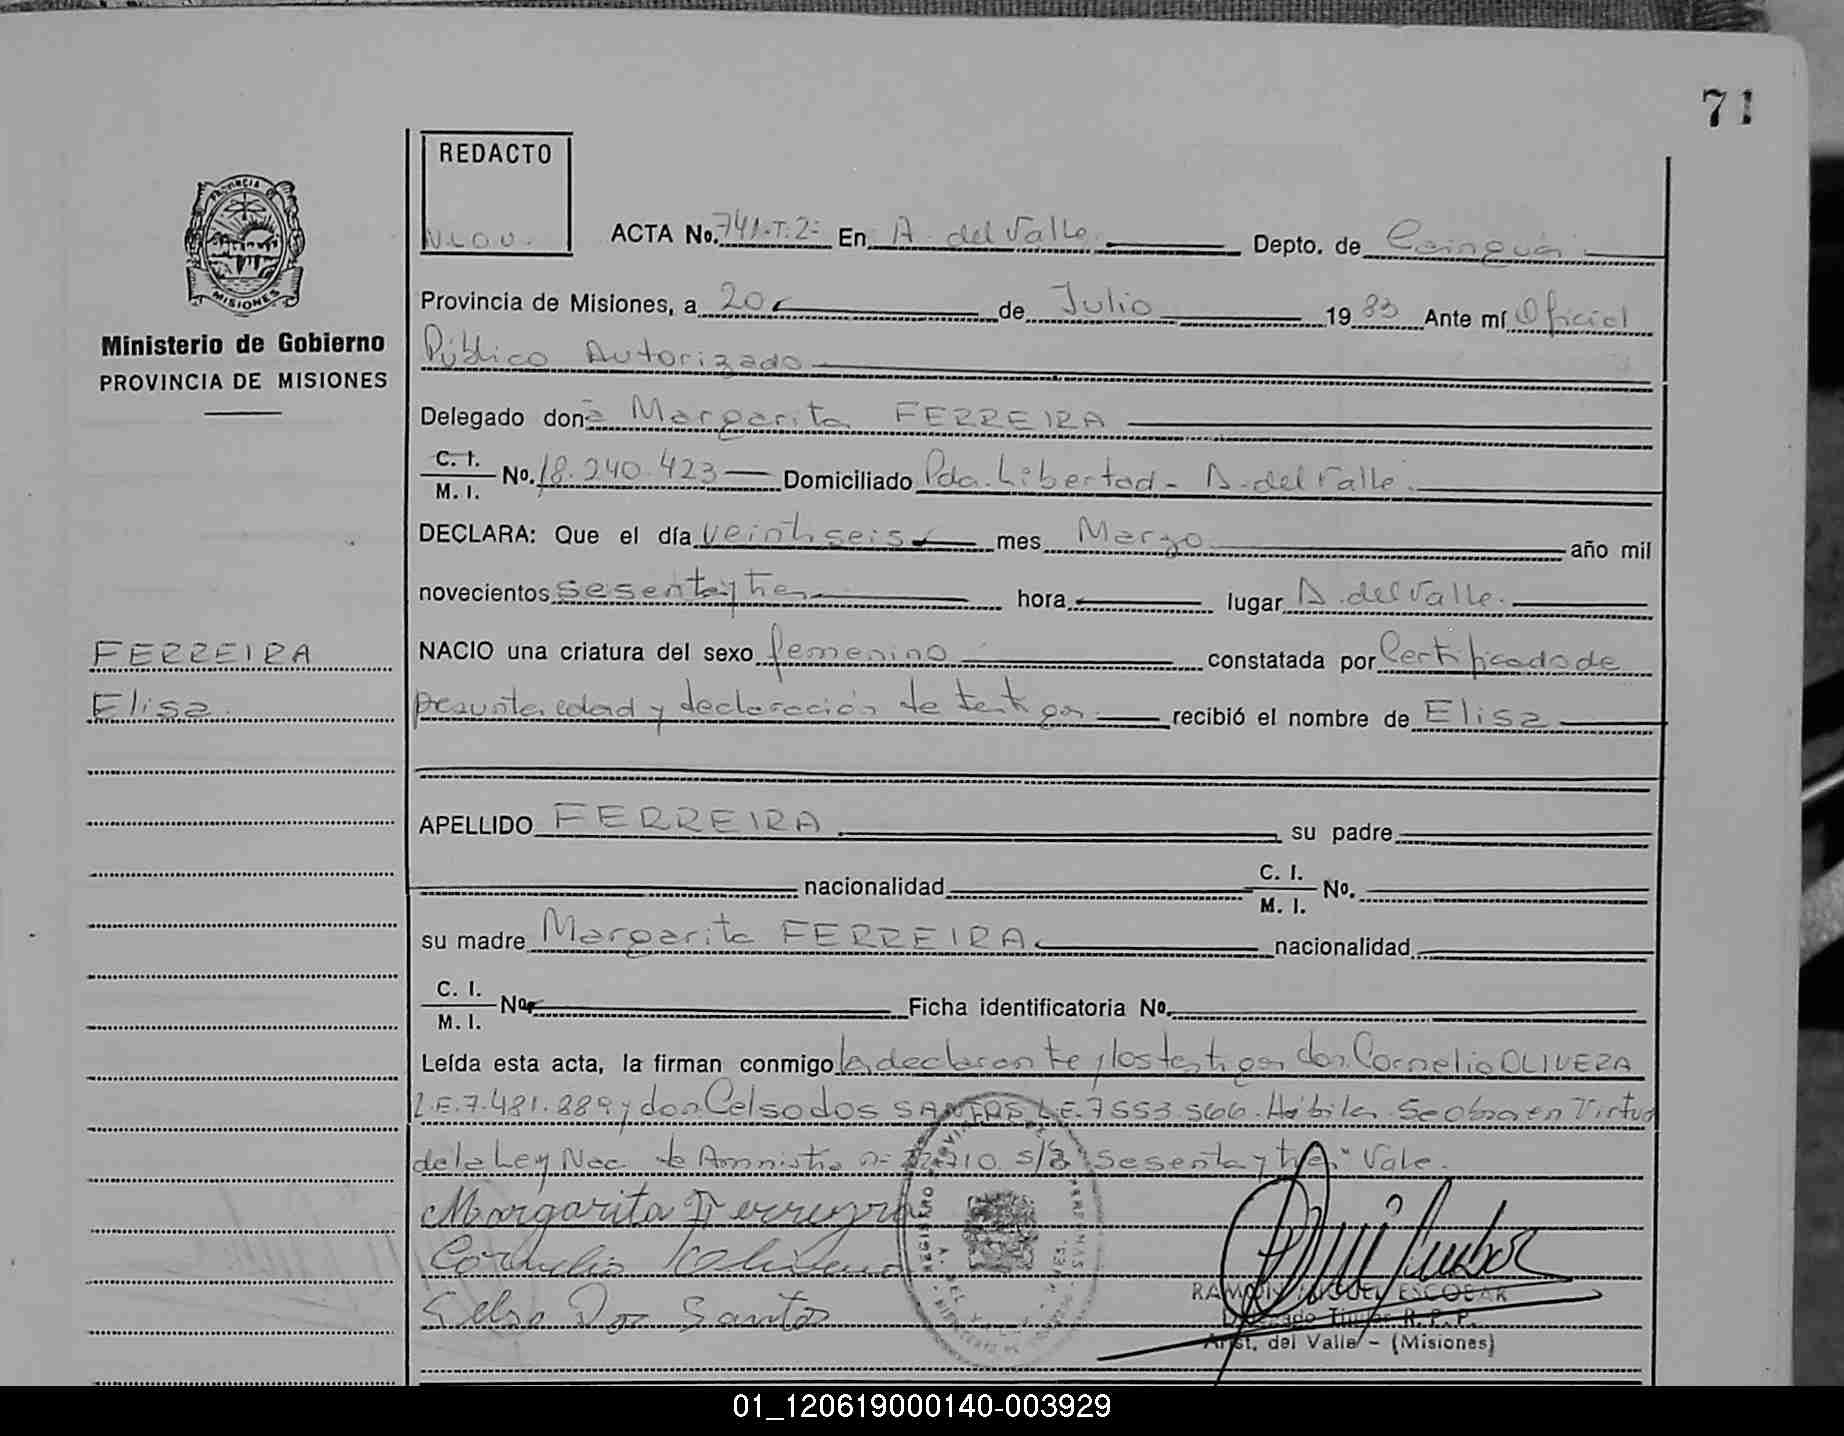 71
REDACTO
V.L.O.V.
PROVINCIA DE
MISIONES
Ministerio de Gobierno
PROVINCIA DE MISIONES
ACTA No. 741-T.2- En A. del Valle Depto. de Cainguás
Provincia de Misiones, a 20 de Julio 1983 Ante mí Oficial
Público Autorizado
Delegado doña Margarita FERREIRA
C. I. M. I. No. 18.240.423 Domiciliado Pda. Libertad - A. del Valle.
DECLARA: Que el día veintiseis mes Marzo año mil
novecientos sesenta y tres hora lugar A. del Valle.
FERREIRA
Elisa
NACIO una criatura del sexo femenino constatada por Certificado de
presunta edad y declaración de testigos recibió el nombre de Elisa
APELLIDO FERREIRA su padre
nacionalidad C. I. M. I. No.
su madre Margarita FERREIRA nacionalidad
C. I. M. I. No. Ficha identificatoria No.
Leída esta acta, la firman conmigo la declarante y los testigos don Cornelio OLIVERA
L.E. 7.481.889 y don Celso dos SANTOS L.E. 7553.566. Hábiles. Se obra en Virtud
de la Ley Nac. de Amnistía nº 22.710 s/r "sesenta y tres" Vale.
Margarita Ferreyra
Cornelio Olivera
Celso Dos Santos
RAMON MIGUEL ESCOBAR
Delegado Titular R. P. P.
Arist. del Valle - (Misiones)
01_120619000140-003929